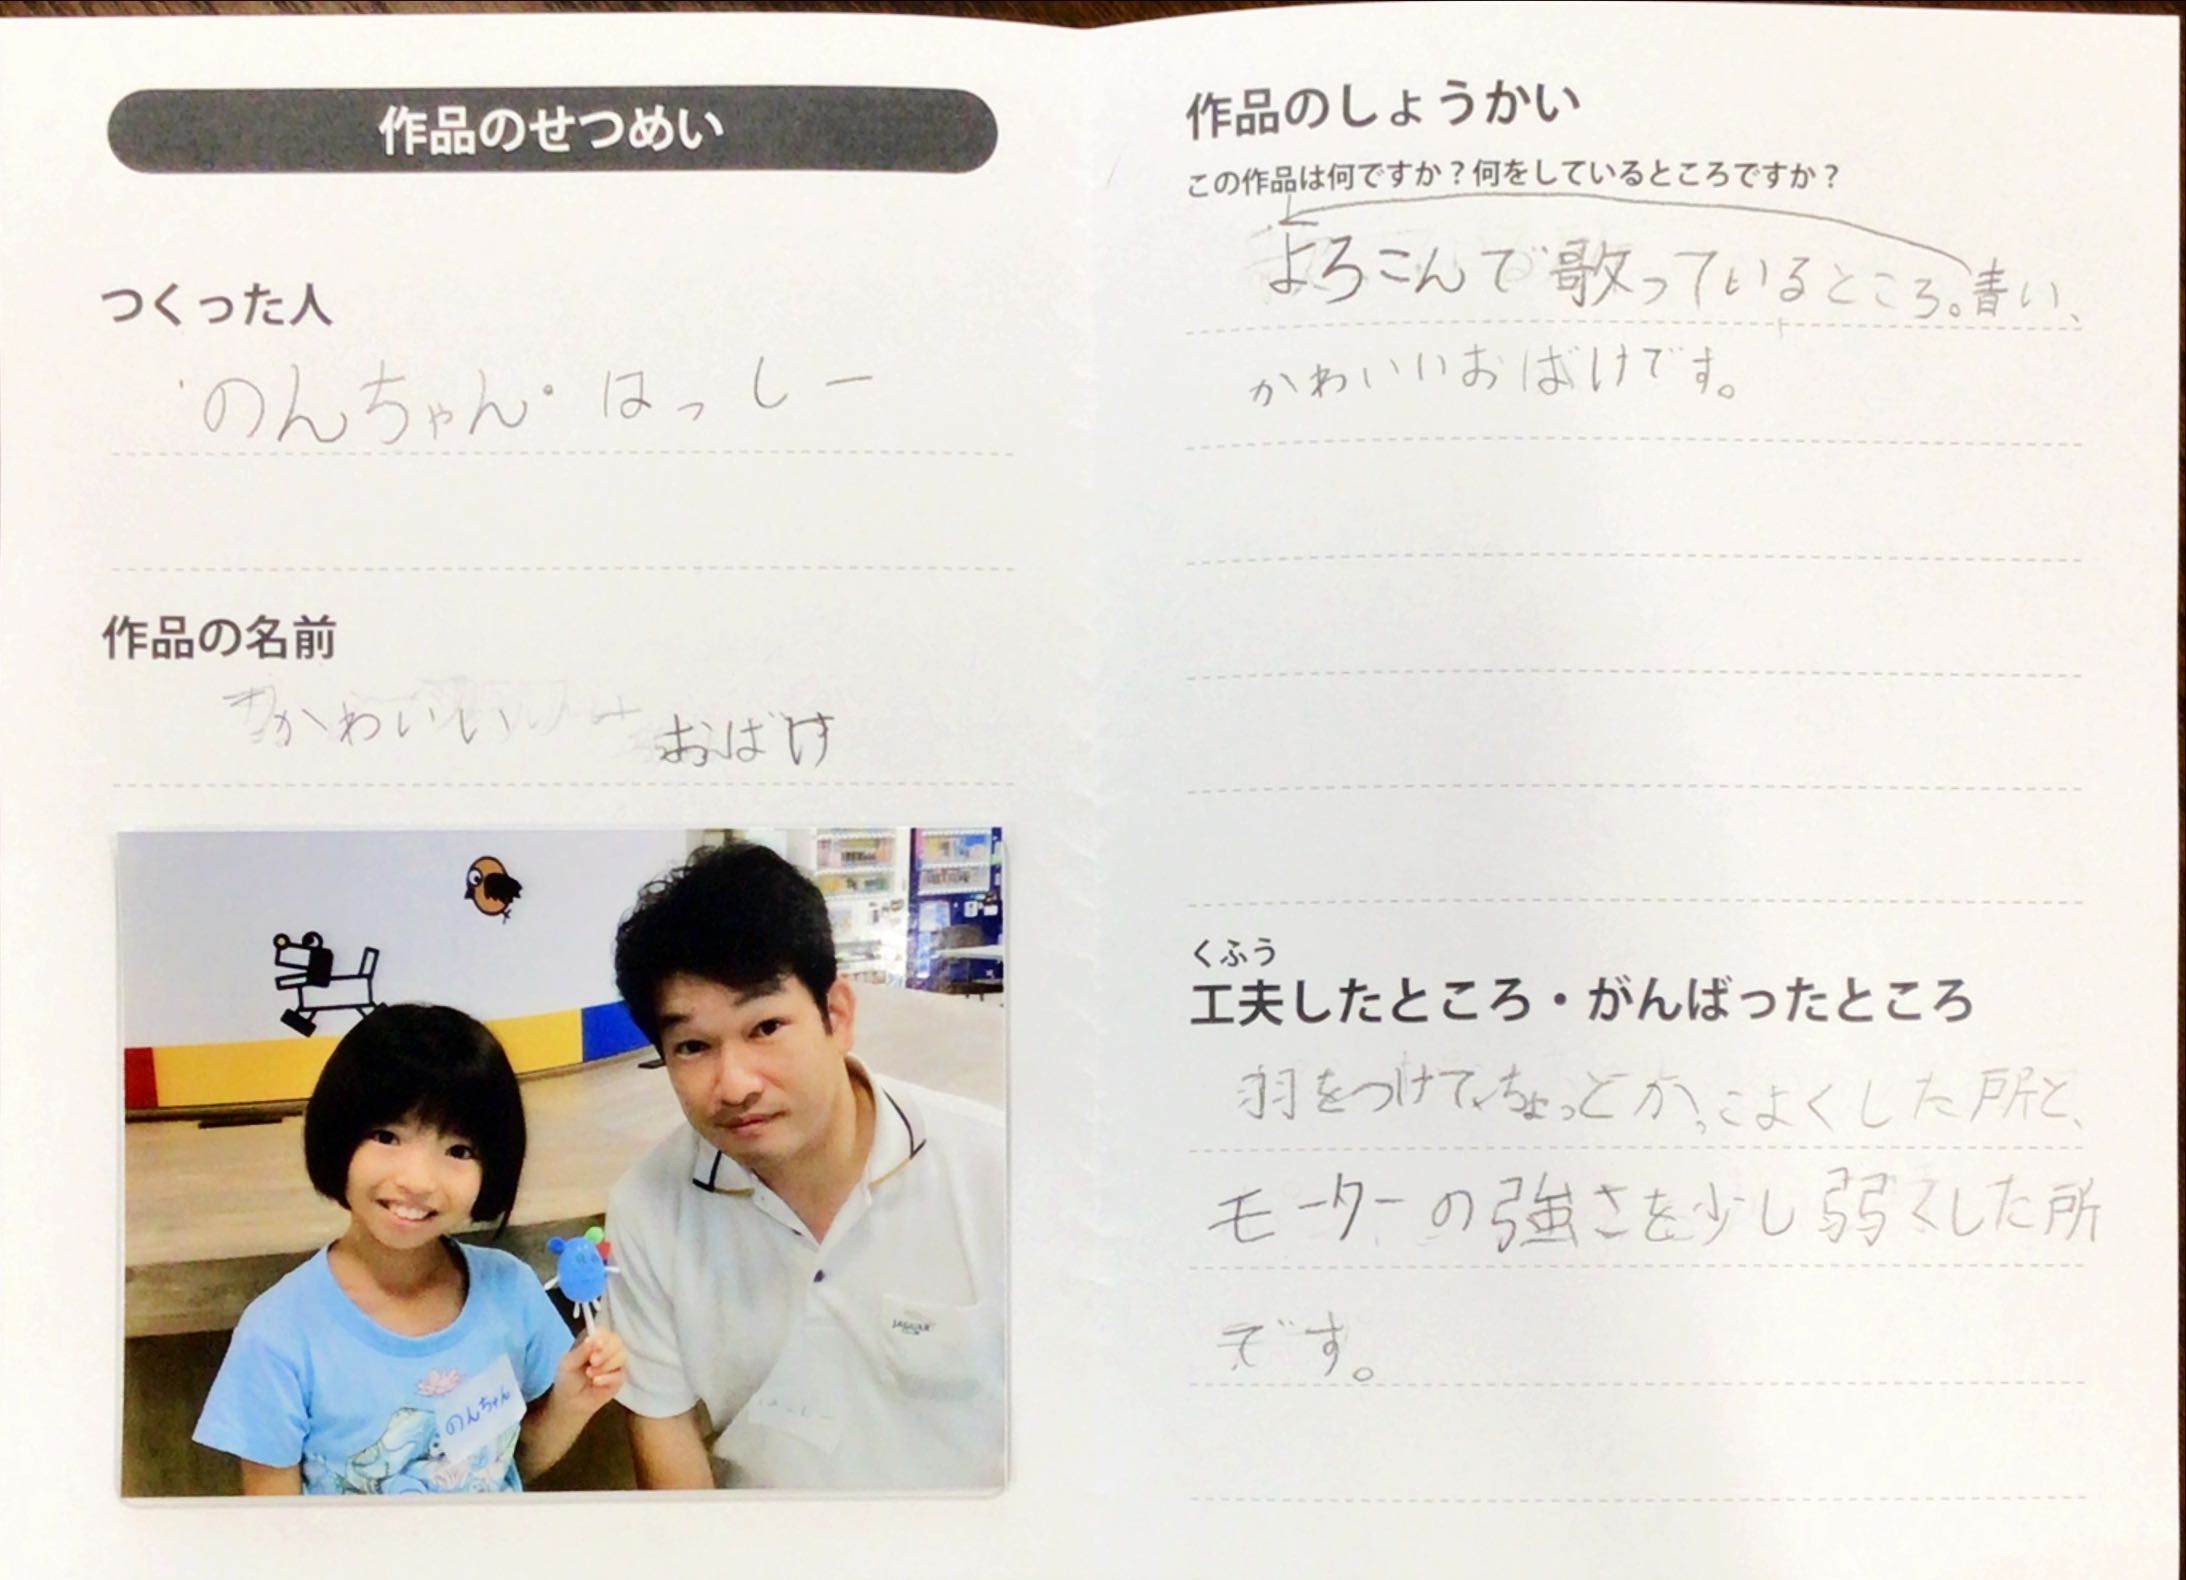 作品のせつめい
つくった人
のんちゃん・はっしー
作品の名前
かわいい おばけ
のんちゃん
はっしー
JAGUAR
作品のしょうかい
この作品は何ですか？何をしているところですか？
よろこんで歌っているところ。青い、
かわいいおばけです。
くふう
工夫したところ・がんばったところ
羽をつけて、ちょっとかっこよくした所と、
モーターの強さを少し弱くした所
です。